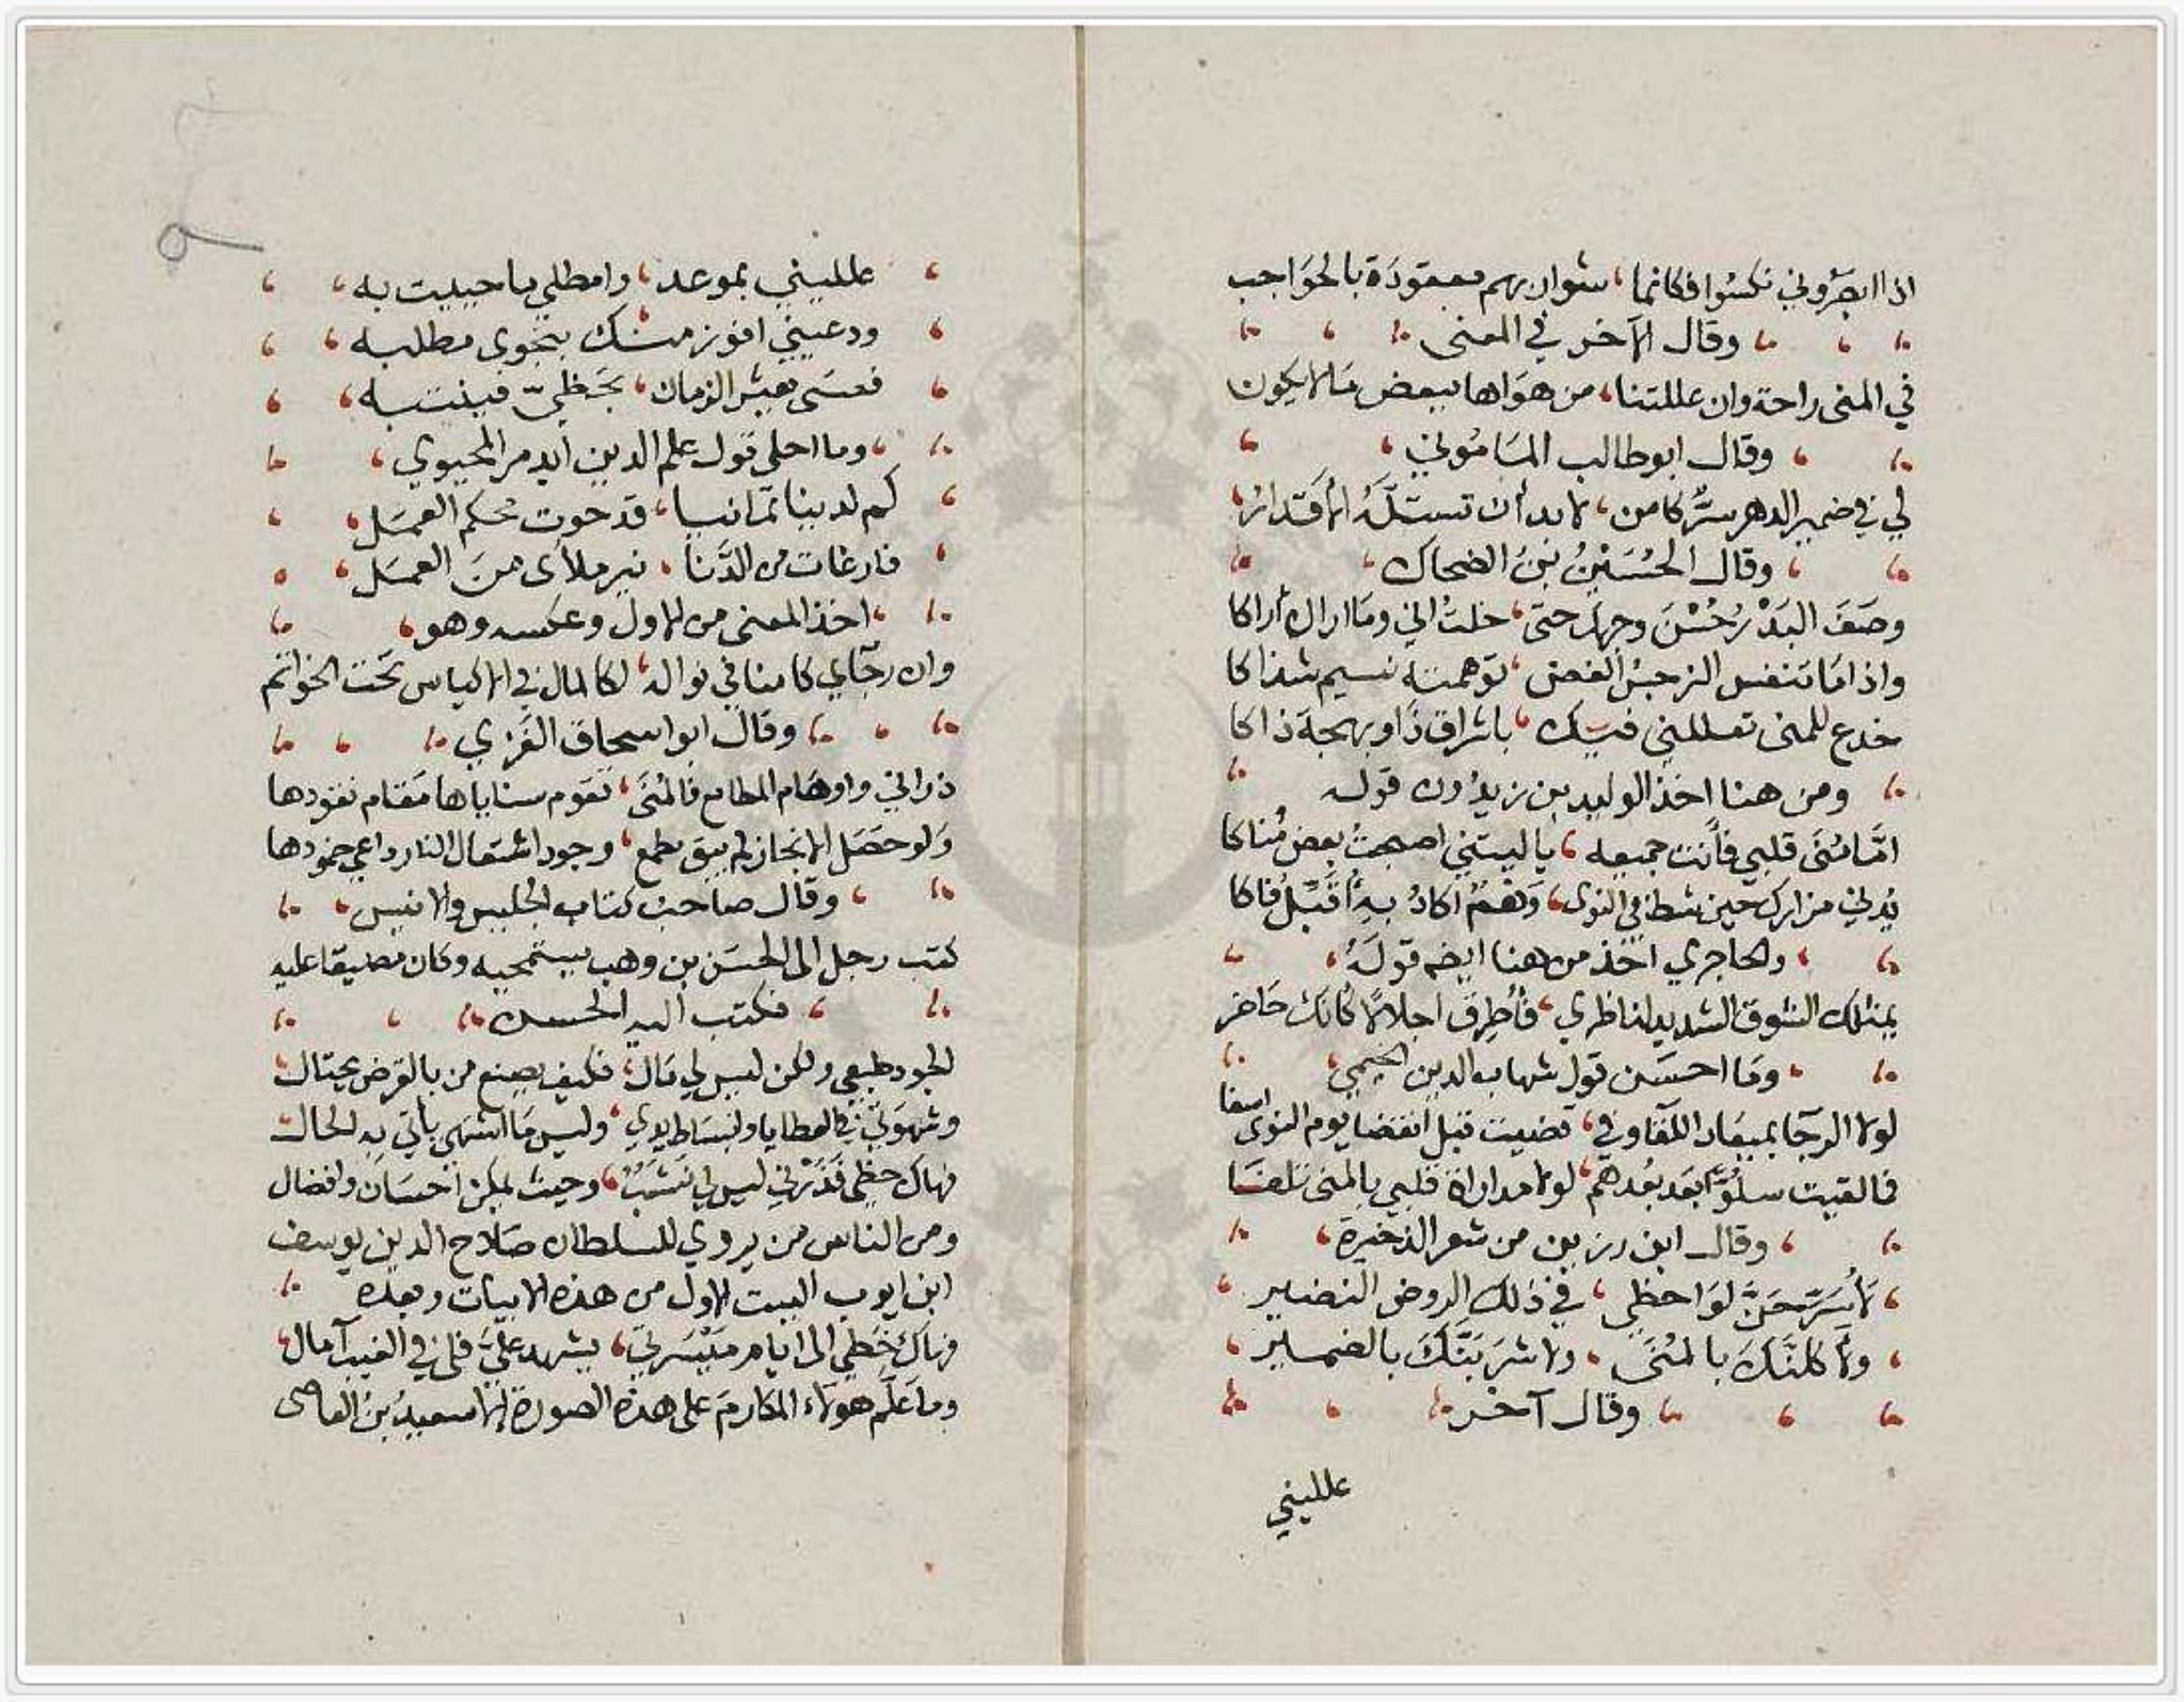 اذا ابصروني نكسوا فكانما، شواربهم معقودة بالحواجب
وقال الآخر في المعنى
في المنى راحة وان عللتنا، من هواها ببعض ما لا يكون
وقال ابو طالب المأموني
لي في ضمير الدهر سرٌّ كامن، لا بد أن تستلّه الأقدار
وقال الحُسَيْنُ بنُ الضحاك
وصَفَ البَدْرُ حُسْنَ وجهك حتى، خلتُ اني وما اراك أراكا
واذا ما تنفس النرجسُ الغض، توهمته نسيم شذاكا
خدع للمنى تعللني فيك، باشراق ذا وبهجة ذاكا
ومن هنا اخذ الوليد بن زيدون قوله
امّا مُنَى قلبي فأنت جميعه، يا ليتني اصبحتُ بعض مُناكا
يُدني مزارك حين شط في النوى، وَهْمٌ اكادُ بِهِ أُقَبِّلُ فاكا
والحاجري اخذ من هنا ايضه قوله
يمثلك الشوق الشديد لناظري، فأُطرق اجلالًا كانك حاضر
وما احسَن قول شهاب الدين الخيمي
لولا الرجا بميعاد اللقا وفي، قضيت قبل انقضا يوم النوى اسفا
فما لقيت سلوًّا بعد بُعدهم، لولا مداراة قلبي بالمنى تلفا
وقال ابن رزين من شعر الذخيرة
لأُسَرِّحَنَّ لواحظي، في ذلك الروض النضير
ولآكلنَّكَ بالمُنَى، ولاشرَبَنَّكَ بالضمير
وقال آخر
علليني
علليني بموعد، وامطلي ما حييت به
ودعيني افوز منك بنجوى مطلبه
فعسى يعثر الزمان، بحَظيّ فينتبه
وما احلى قول علم الدين أيدمر المحيوي
كم لدينا تمانيا، قد حوت محكم العمَل
فارغات من الدَّنا، نير ملأى من العمَل
اخذ المعنى من الاول وعكسه وهو
وان رجاي كامنا في نواله، لكالمال في الاكياس تحت الخواتم
وقال ابو اسحاق الغَزي
ذراني واوهام المطامع فالمُنَى، تقوم سناياها مقام نقودها
ولو حصَل الانجاز لم يبق مطمع، وجود اشتعال النار داعي خمودها
وقال صاحب كتاب الجليس والانيس
كتب رجل الى الحسَن بن وهب يستمحيه وكان مضيقا عليه
فكتب اليه الحسن
الجود طبعي ولكن ليس لي مال، فكيف يصنع من بالقرض يحتال
وشهوتي في العطايا وانبساط يدي، وليس ما اشتهي يأتي به الحال
فهاك خطي فَذَرْني ليس لي نَشَبٌ، وحيث يمكن احسَان وافضال
ومن الناس من يروي للسلطان صلاح الدين يوسف
ابن ايوب البيت الاول من هذه الابيات وبعده
فهاك خطي الى ايام مَيْسَرتي، يشهد عليَّ فلي في الغيب آمال
وما علّم هولاء المكارمَ على هذه الصورة الا سعيدُ بن العاصى